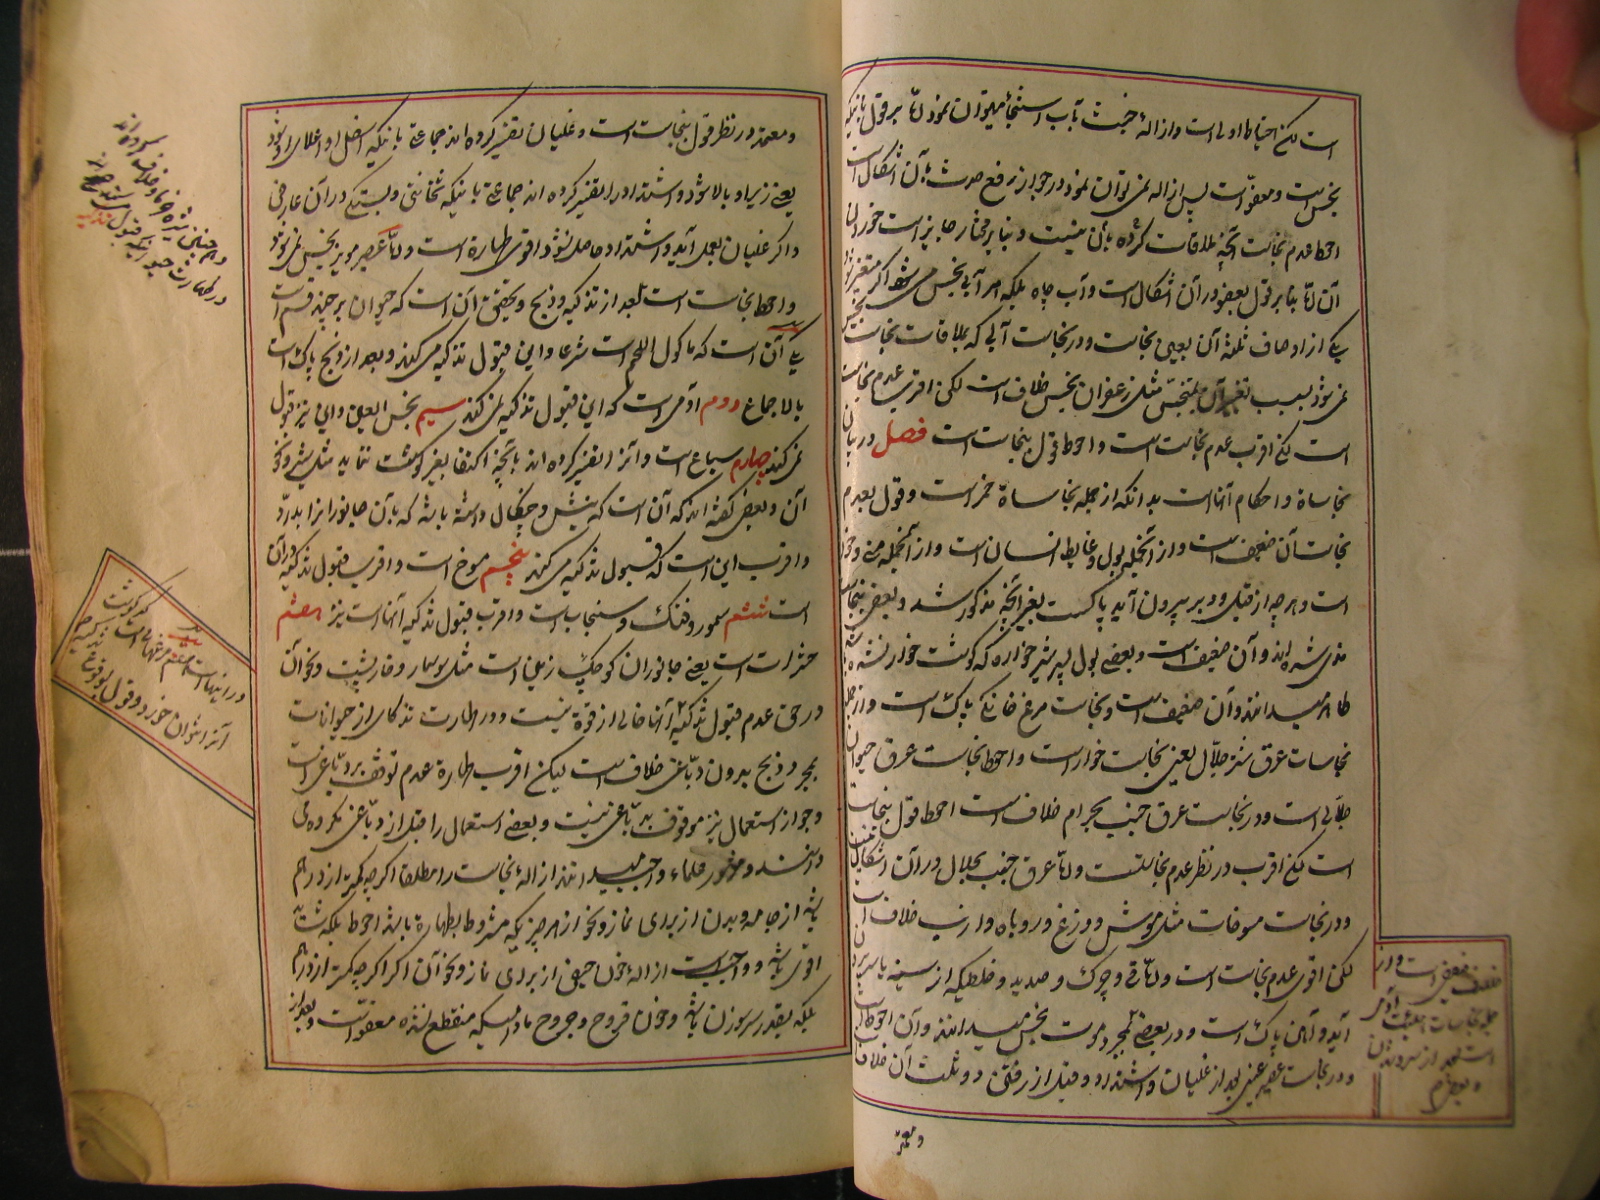 است لکن احتیاط اولی است و ازالهٔ خبث بآب استنجا میتوان نمود اما بر قول بانکه
نجس است و معفو است پس ازاله نمی توان نمود و در جواز رفع حدث بآن اشکال است
احوط عدم نجاست آنچه ملاقات کرده بآن نیست و بنا بر مختار جایز است خوردن
آن اما بنا بر قول بعضی در آن اشکال است و آب چاه بلکه هر آبی نجس می شود اگر متغیر شود
یکی از اوصاف ثلثه آن بعین نجاست و در نجاست آبی که بملاقات نجاست نجس
نمی شود بسبب تغیر آن بمتنجس مثل زعفران نجس خلاف است لکن اقرب عدم نجاست
است لکن اقرب عدم نجاست است و احوط قول بنجاست است فصل در بیان
نجاساة و احکام آنهاست بدانکه از جمله نجاساة خمر است و قول بعدم
نجاست آن ضعیف است و از آنجمله بول و غایط انسان است و از آنجمله منی و خون
است و هر چه از قبل و دبر بیرون آید پاکست بغیر آنچه مذکور شد و بعضی بنجاست
مذی شده اند و آن ضعیف است و بعضی بول پسر شیر خواره که گوشت خوار نشده باشد
طاهر میدانند و آن ضعیف است و نجاست مرغ خانگی پاک است و از جمله
نجاسات عرق شتر جلّال یعنی نجاست خوار است و احوط نجاست عرق حیوان
جلالی است و در نجاست عرق جنب بحرام خلاف است احوط قول بنجاست
است لکن اقرب در نظر عدم نجاستست و امّا عرق جنب بحلال در آن اشکالی نیست
و در نجاست مسوخات مثل موش و وزغ و روباه و ارنب خلاف است
لکن اقوی عدم نجاست است و امّا قی و چرک و صدید و خلطیکه از سینه یا سر بیرون
آید و آهن پاک است و در بعضی بمجرد موت نجس میدانند و آن احوط است
و در نجاست عصیر عنبی بعد از غلیان و اشتداد و قبل از رفتن دو ثلث آن خلاف است
و معتمد
و معتمد در نظر قول بنجاست است و غلیان تفسیر کرده اند جماعة بانیکه اسفل او اعلای او شود
یعنی زیر او بالا شود و اشتداد را تفسیر کرده اند جماعة بانیکه ثخانتی و بستگی در آن عارض
و اگر غلیان بعمل آید و اشتداد حاصل نشود اقوی طهارة است و امّا عصیر مویز نجس نمی شود
و احوط نجاست است بعد از تذکیه و ذبح و تحقیق آن است که حیوان بر چند قسم است
یکی آن است که ماکول اللحم است شرعا و این قبول تذکیه می کند و بعد از ذبح پاک است
بالاجماع دوم آدمی است که این قبول تذکیه نمی کند سیم نجس العین و این نیز قبول
نمی کند چهارم سباع است و آنرا تفسیر کرده اند بآنچه اکتفا بغیر گوشت ننماید مثل شیر و نحو
آن و بعضی گفته اند که آن است که نیش و چنگال داشته باشد که بآن جانور را بدرّد
و اقرب این است که قبول تذکیه می کند پنجم مسوخ است و اقرب قبول تذکیه در آن
است ششم سمور و فنک و سنجاب است و اقرب قبول تذکیه آنها است نیز هفتم
حشرات است یعنی جانوران کوچک زمین است مثل سوسمار و خارپشت و نحو آن
در حق عدم قبول تذکیه آنها خالی از قوة نیست و در طهارت تذکای از حیوانات
بمجرد ذبح بدون دبّاغی خلاف است لیکن اقرب طهارة عدم توقف بر دبّاغی است
و جواز استعمال نیز موقوف بدبّاغی نیست و بعضی استعمال را قبل از دبّاغی مکروه می
دانند و مشهور علماء واجب میدانند ازالهٔ نجاست را مطلقا اگر چه کمتر از درهم
باشد از جامه و بدن از برای نماز و نحو از هر چیزیکه مشروط بطهارة باشد احوط بلکه
اقوی باشد و واجب است ازالهٔ خون حیض از برای نماز و نحو آن اگر چه کمتر از درهم
بلکه بقدر سر سوزن باشد و خون قروح و جروح مادامیکه منقطع نشده معفو است و بعد از
در طهارت
قبول تذکیه
در اینها است
آنرا نتوان خورد و قول بوقوع
خلاف ضعیف است و از
جمله نجاسات میّت آدمی
است بعد از سرد شدن